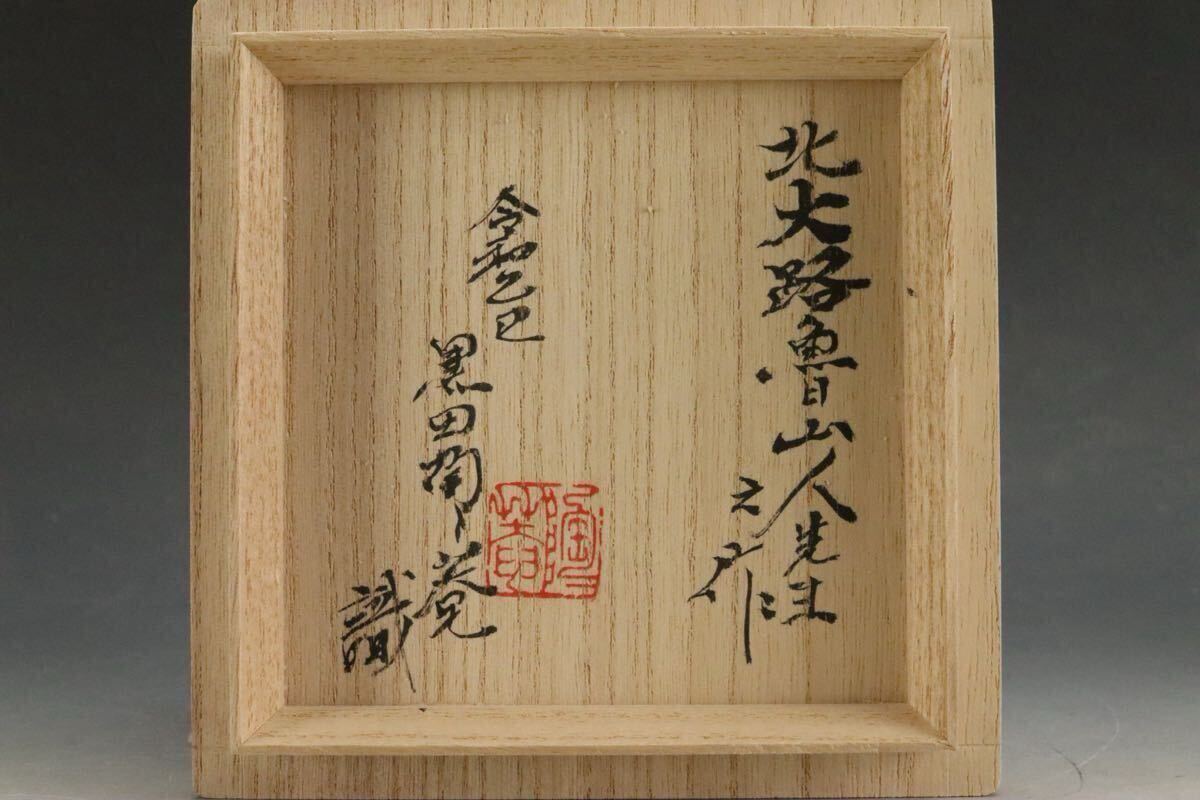 北大路魯山人先生
之作
令和乙巳
黒田陶々菴
識
陶々菴